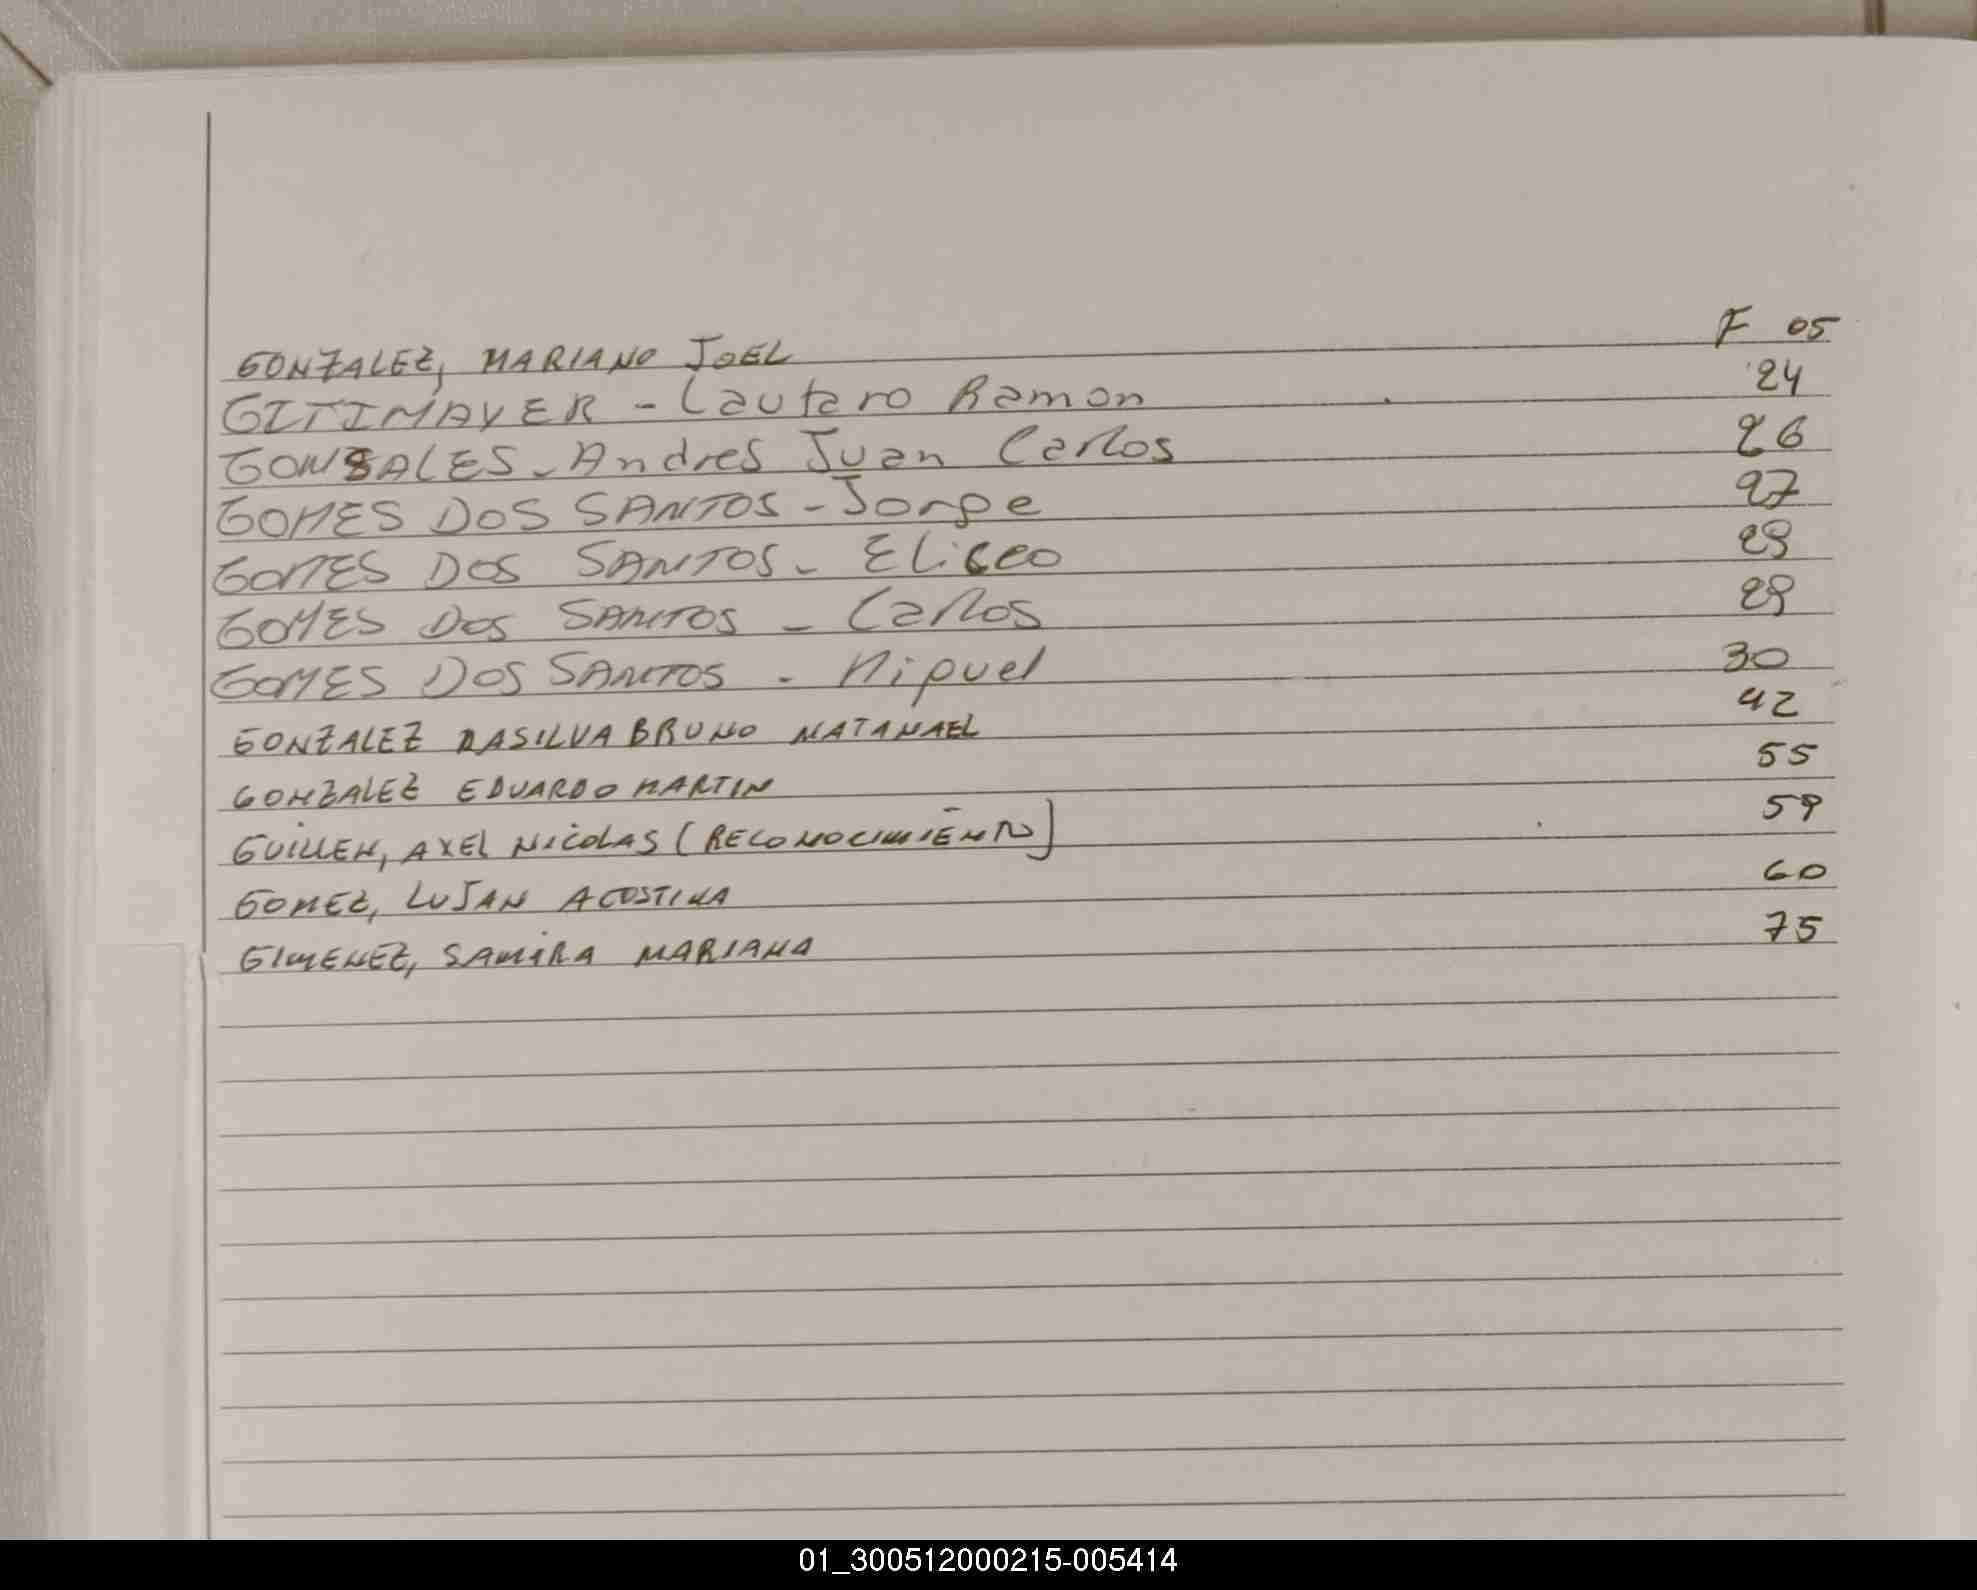 GONZALEZ, MARIANO JOEL F 05
GITIMAYER - Lautaro Ramon 24
GONSALES - Andres Juan Carlos 26
GOMES DOS SANTOS - Jorge 27
GOMES DOS SANTOS - Eliseo 28
GOMES DOS SANTOS - Carlos 29
GOMES DOS SANTOS - Miguel 30
GONZALEZ DASILVA BRUNO NATANAEL 42
GONZALEZ EDUARDO MARTIN 55
GUILLEN, AXEL NICOLAS (RECONOCIMIENTO) 59
GOMEZ, LUJAN AGOSTINA 60
GIMENEZ, SAMIRA MARIANA 75
01_300512000215-005414